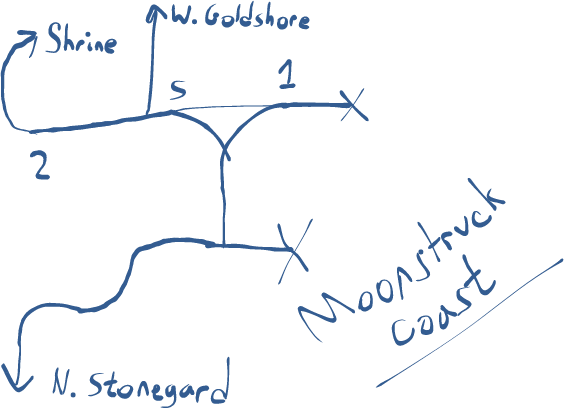 W. Goldshore
Shrine
S
1
2
Moonstruck
Coast
N. Stonegard